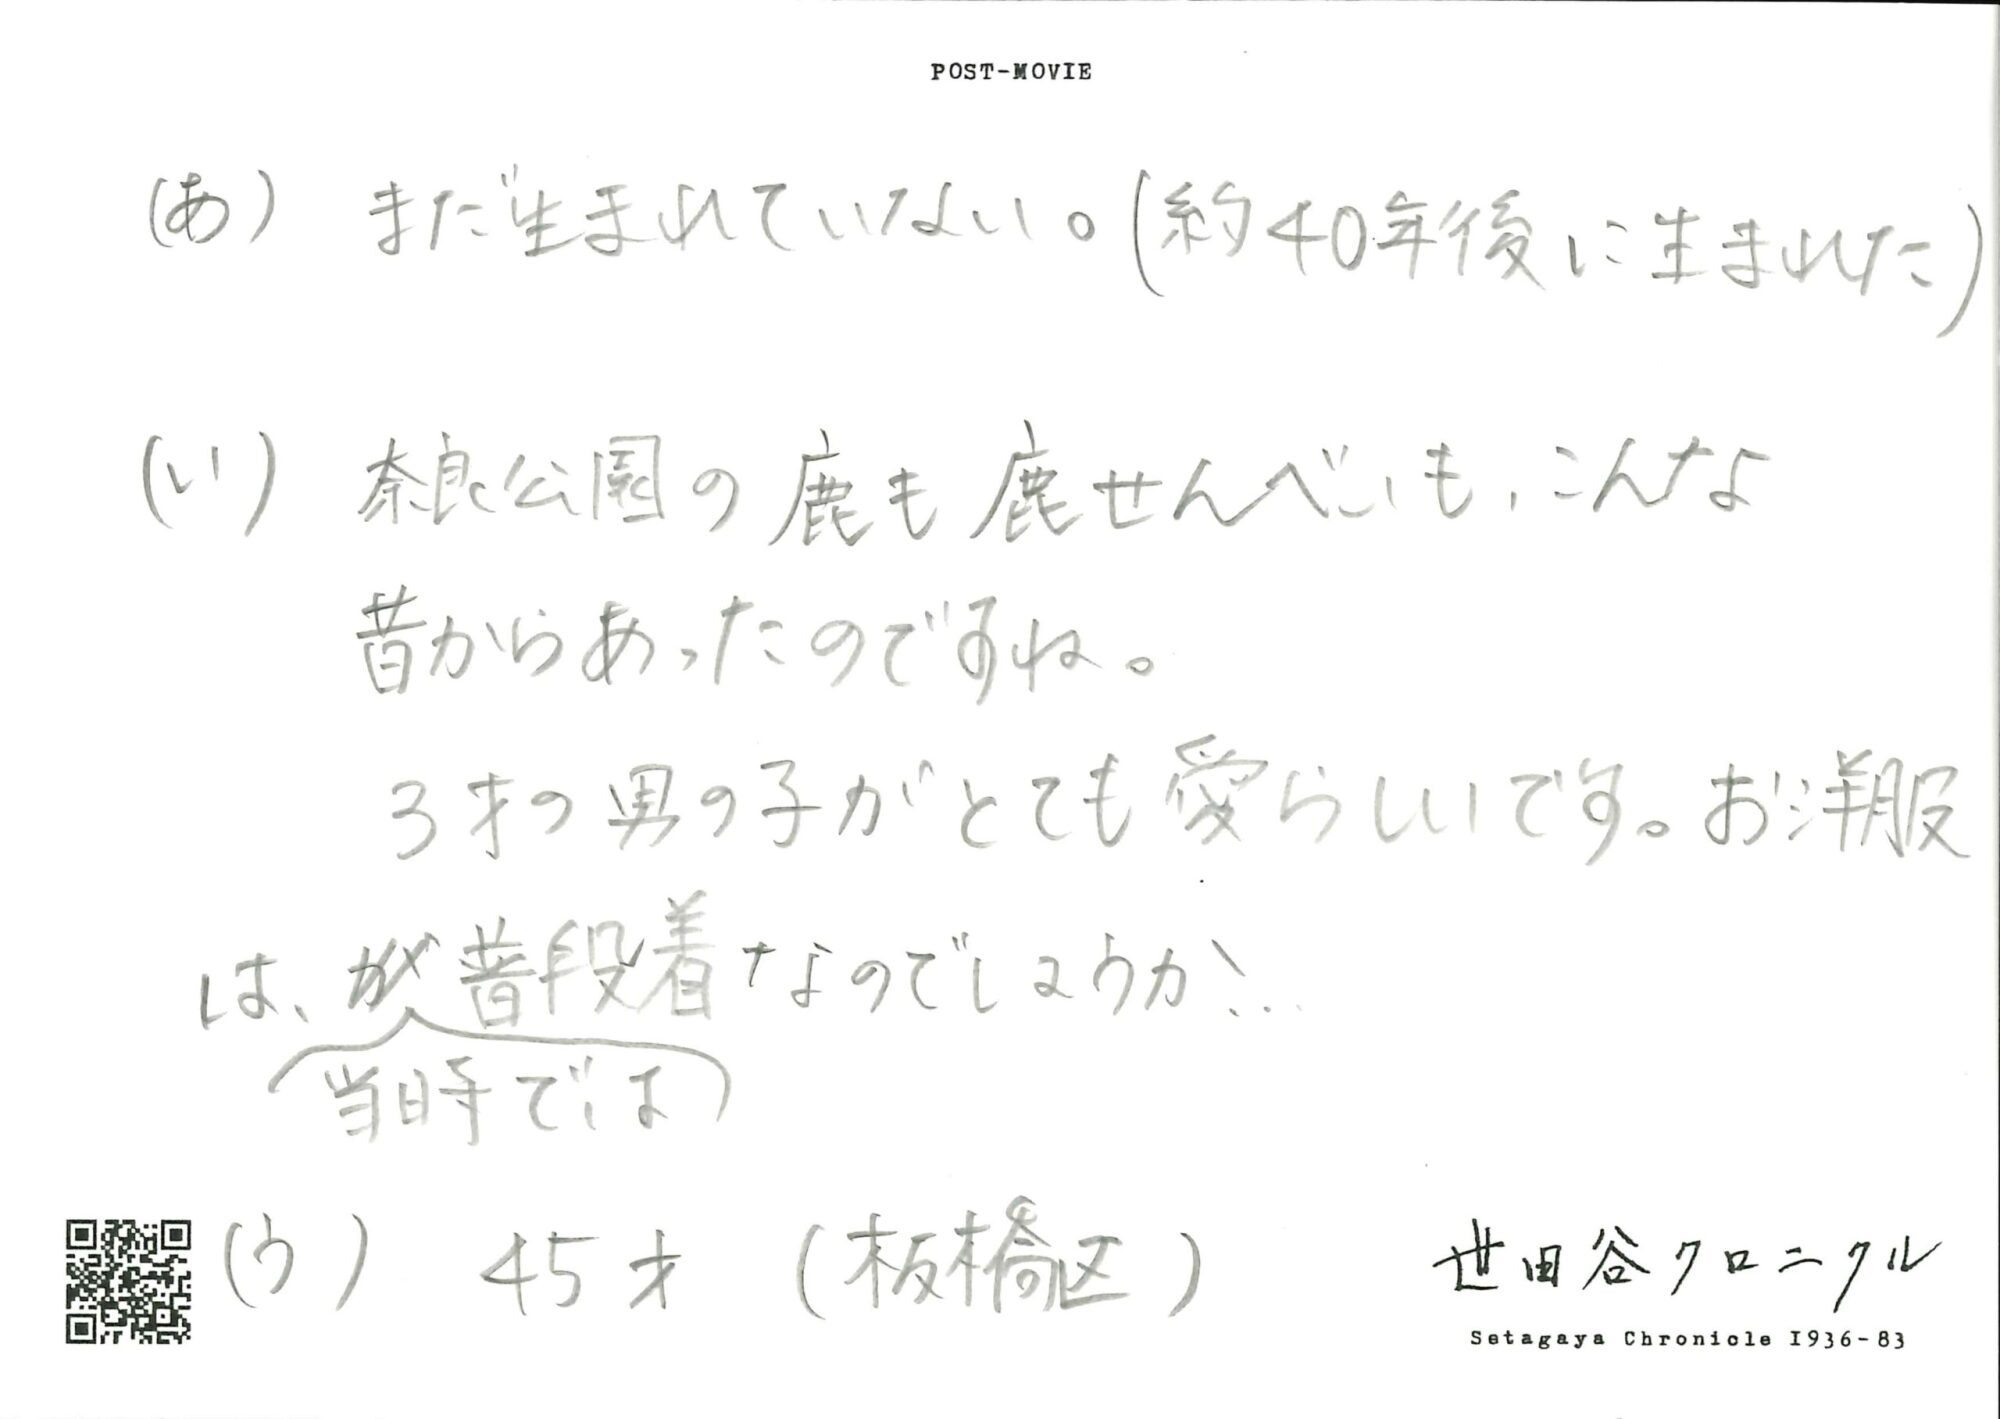 POST-MOVIE
(あ) まだ生まれていない。(約40年後に生まれた)
(い) 奈良公園の鹿も鹿せんべいも、こんな
昔からあったのですね。
3才の男の子がとても愛らしいです。お洋服
は、が普段着なのでしょうか…
当時では
(う) 45才 (板橋区)
世田谷クロニクル
Setagaya Chronicle 1936-83